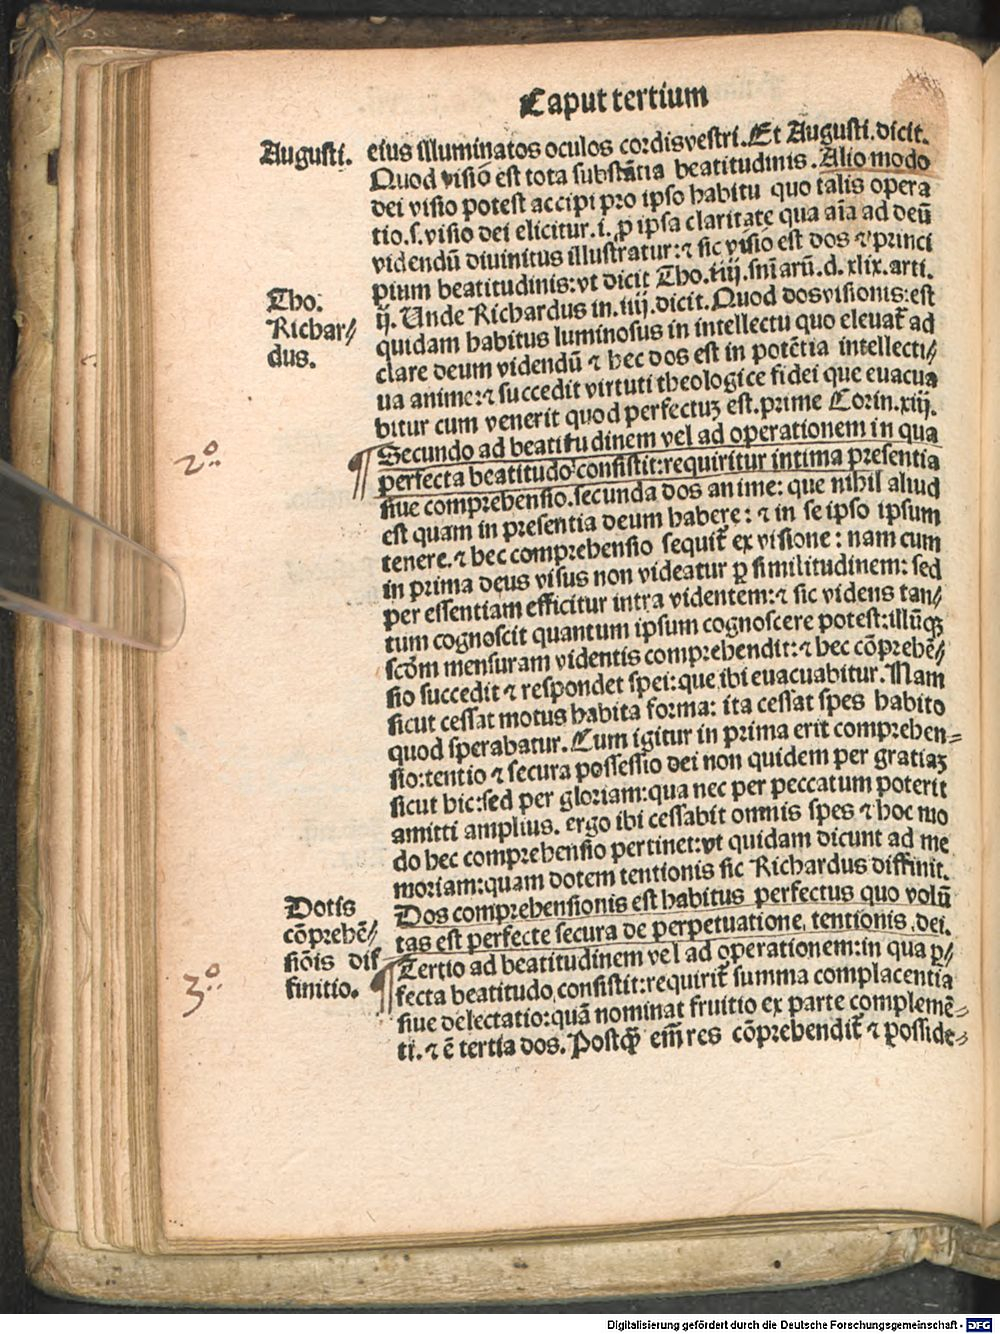 Caput tertium
Augusti.
eius illuminatos oculos cordis vestri. Et Augusti. dicit.
Quod visio est tota substãtia beatitudinis. Alio modo
dei visio potest accipi pro ipso habitu quo talis opera
tio. s. visio dei elicitur. i. ꝓ ipsa claritate qua aĩa ad deũ
videndũ diuinitus illustratur: ⁊ sic visio est dos ⁊ princi
pium beatitudinis: vt dicit Tho. iiij. sniarũ. d. xlix. arti.
Tho.
Richar⸗
dus.
ij. Unde Richardus in. iiij. dicit. Quod dos visionis: est
quidam habitus luminosus in intellectu quo eleuat̃ ad
clare deum videndũ ⁊ hec dos est in potẽtia intellecti⸗
ua anime: ⁊ succedit virtuti theologice fidei que euacua
bitur cum venerit quod perfectuʒ est. prime Corin. xiij.
2º
¶ Secundo ad beatitudinem vel ad operationem in qua
perfecta beatitudo consistit: requiritur intima presentia
siue comprehensio. secunda dos anime: que nihil aliud
est quam in presentia deum habere: ⁊ in se ipso ipsum
tenere. ⁊ hec comprehensio sequit̃ ex visione: nam cum
in prima deus visus non videatur ꝑ similitudinem: sed
per essentiam efficitur intra videntem: ⁊ sic videns tan⸗
tum cognoscit quantum ipsum cognoscere potest: illũqʒ
scd̃m mensuram videntis comprehendit: ⁊ hec cõprehẽ⸗
sio succedit ⁊ respondet spei: que ibi euacuabitur. Nam
sicut cessat motus habita forma: ita cessat spes habito
quod sperabatur. Cum igitur in prima erit comprehen⸗
sio: tentio ⁊ secura possessio dei non quidem per gratiaʒ
sicut hic: sed per gloriam: qua nec per peccatum poterit
amitti amplius. ergo ibi cessabit omnis spes ⁊ hoc mo
do hec comprehensio pertinet: vt quidam dicunt ad me
moriam: quam dotem tentionis sic Richardus diffinit.
Dotis
cõprehẽ⸗
siõis dif
finitio.
Dos comprehensionis est habitus perfectus quo volũ
tas est perfecte secura de perpetuatione, tentionis, dei.
3º
¶ Tertio ad beatitudinem vel ad operationem: in qua ꝑ⸗
fecta beatitudo consistit: requirit̃ summa complacentia
siue delectatio: quã nominat fruitio ex parte complemẽ⸗
ti. ⁊ ẽ tertia dos. Postqᷓ em̃ res cõprehendit̃ ⁊ posside⸗
Digitalisierung gefördert durch die Deutsche Forschungsgemeinschaft - DFG